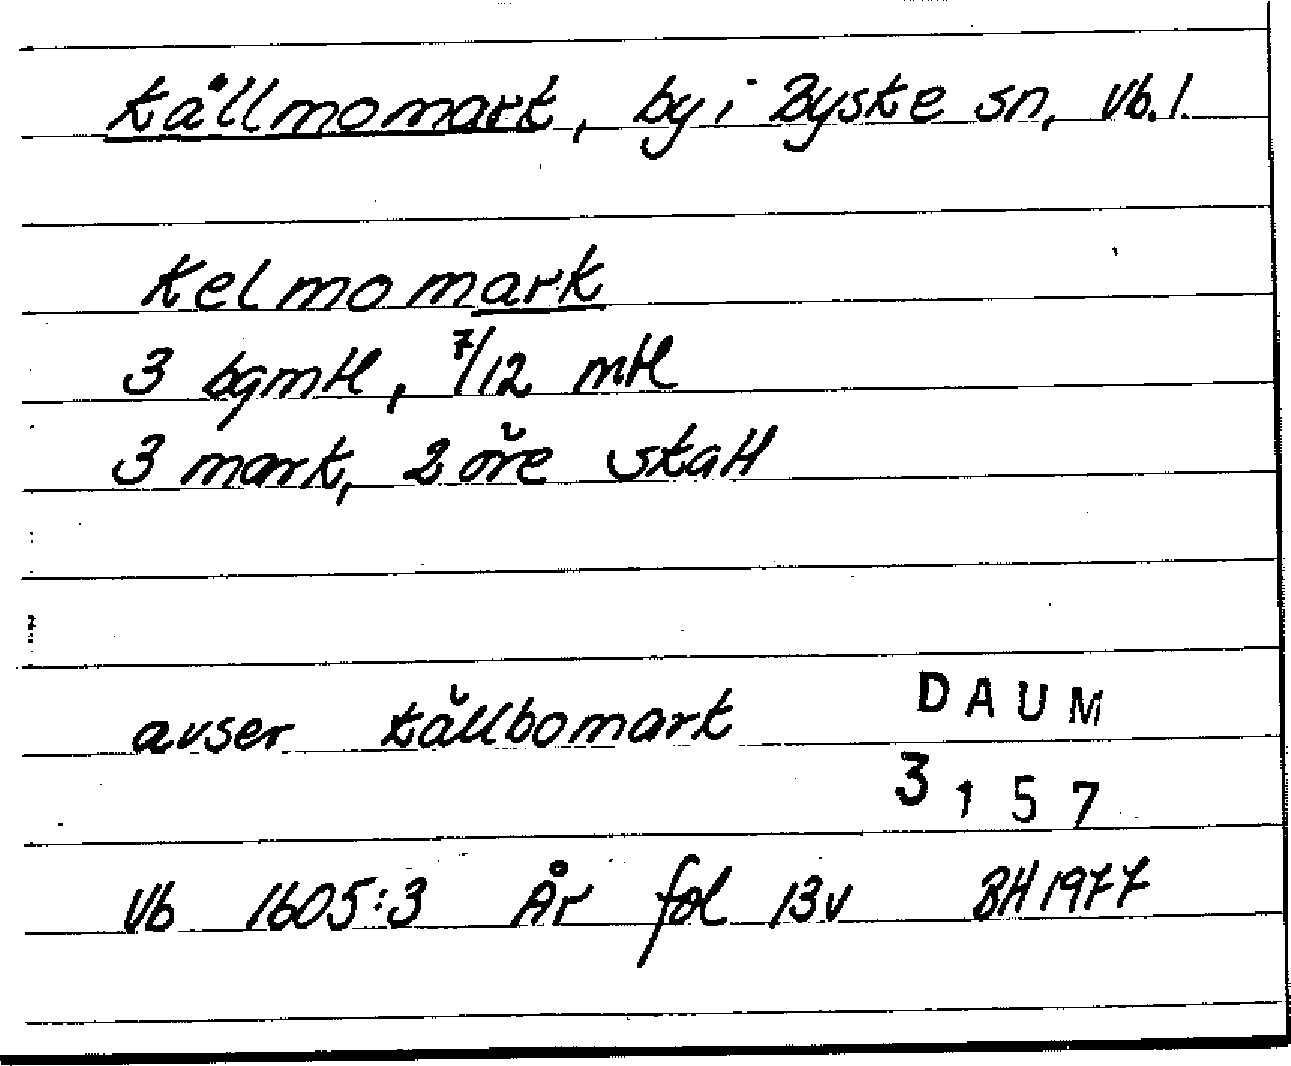 Källmomark, by i Byske sn, Vb. l.
Kelmomark
3 bgmtl, 7/12 mtl
3 mark, 2 öre skatt
avser Källbomark
DAUM
3157
Vb 1605:3 År fol 13v BH 1977